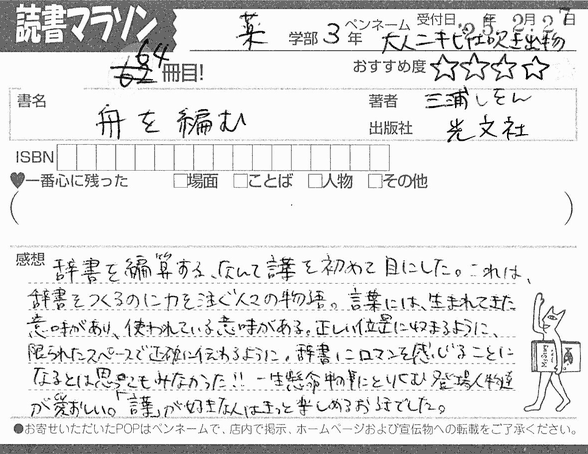 読書マラソン
薬 学部 3年 ペンネーム 大人ニキビ吹き出物
受付日 '23年 2月27日
64冊目!
おすすめ度 ☆☆☆☆
書名 舟を編む
著者 三浦しをん
出版社 光文社
ISBN
♥一番心に残った □場面 □ことば □人物 □その他
( )
感想 辞書を編算する、なんて謹を初めて目にした。これは、
辞書をつくるのに力を注ぐ人々の物語。言葉には、生まれてきた
意味があり、使われている意味がある。正しい位置に収まるように、
限られたスペースで正確に伝わるように。辞書にロマンを感じることに
なるとは思ってもみなかった!! 一生懸命物事にとりくむ登場人物達
が愛おしい。「謹」が好きな人はきっと楽しめるお話でした。
●お寄せいただいたPOPはペンネームで、店内で掲示、ホームページおよび宣伝物への転載をご了承ください。